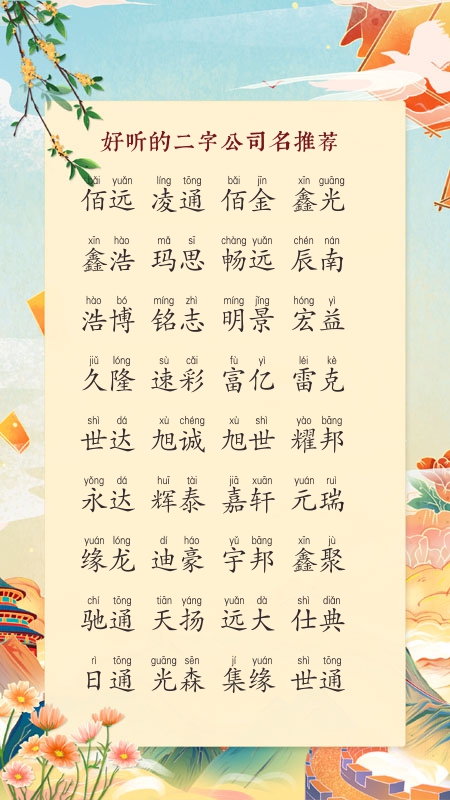 好听的二字公司名推荐
bǎi yuǎn líng tōng bǎi jīn xīn guāng
佰远 凌通 佰金 鑫光
xīn hào mǎ sī chàng yuǎn chén nán
鑫浩 玛思 畅远 辰南
hào bó míng zhì míng jǐng hóng yì
浩博 铭志 明景 宏益
jiǔ lóng sù cǎi fù yì léi kè
久隆 速彩 富亿 雷克
shì dá xù chéng xù shì yào bāng
世达 旭诚 旭世 耀邦
yǒng dá huī tài jiā xuān yuán ruì
永达 辉泰 嘉轩 元瑞
yuán lóng dí háo yǔ bāng xīn jù
缘龙 迪豪 宇邦 鑫聚
chí tōng tiān yáng yuǎn dà shì diǎn
驰通 天扬 远大 仕典
rì tōng guāng sēn jí yuán shì tōng
日通 光森 集缘 世通